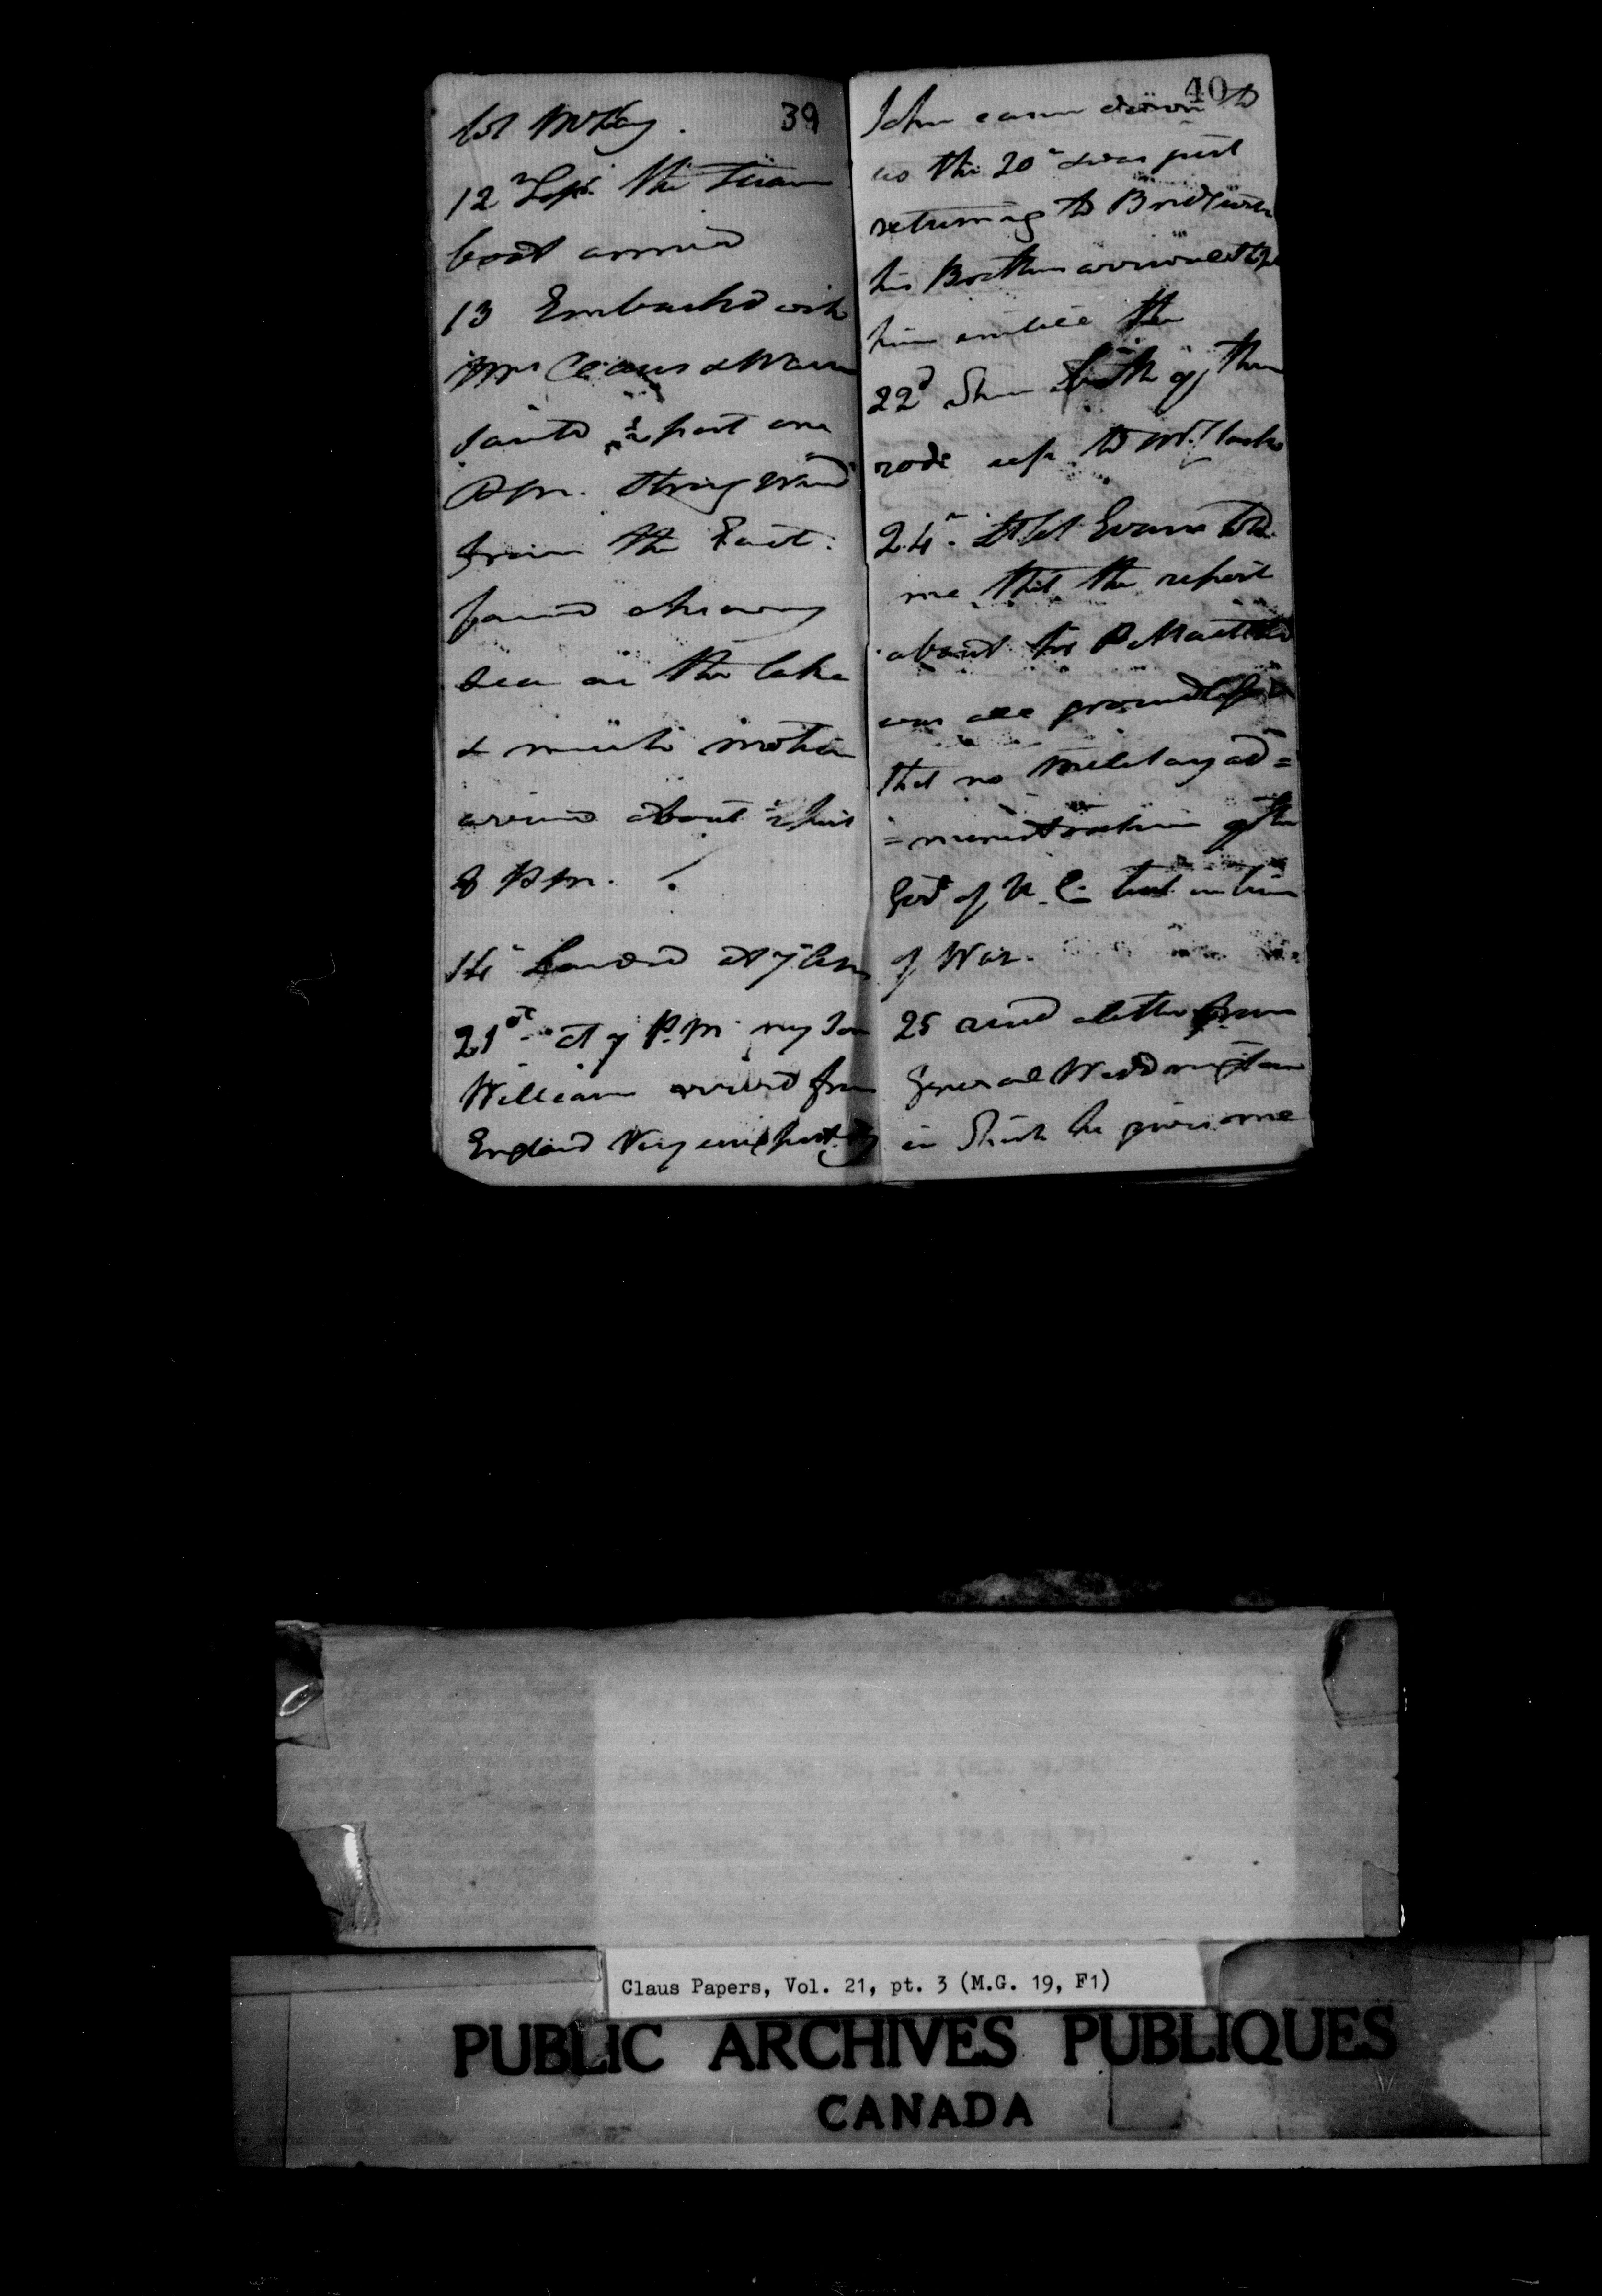 39
Col McKay.
12th Sept. the Steam
boat arrived
13 Embarked with
Mrs Claus & Warren
sailed ½ past one
P.M. strong wind
from the East.
found a heavy
sea on the lake
& much motion
arrived about ½ past
8 P.M.
14th Landed at 7 Am
21st at 7 P.M. my Son
William arrived from
England Very unexpectedly
40
John came down to
us the 20th & was just
returning to
his Brothers arrival
him untill the
22d both of them
rode up to
24th Lt Col Evans told
me that the report
about Sir P Maitland
was all groundless
that no Military ad=
=ministration of the
Govt of U.C. but in time
of War.
25 recd a letter from
General
in which he gives me
Claus Papers, Vol. 21, pt. 3 (M.G. 19, F1)
PUBLIC ARCHIVES PUBLIQUES
CANADA